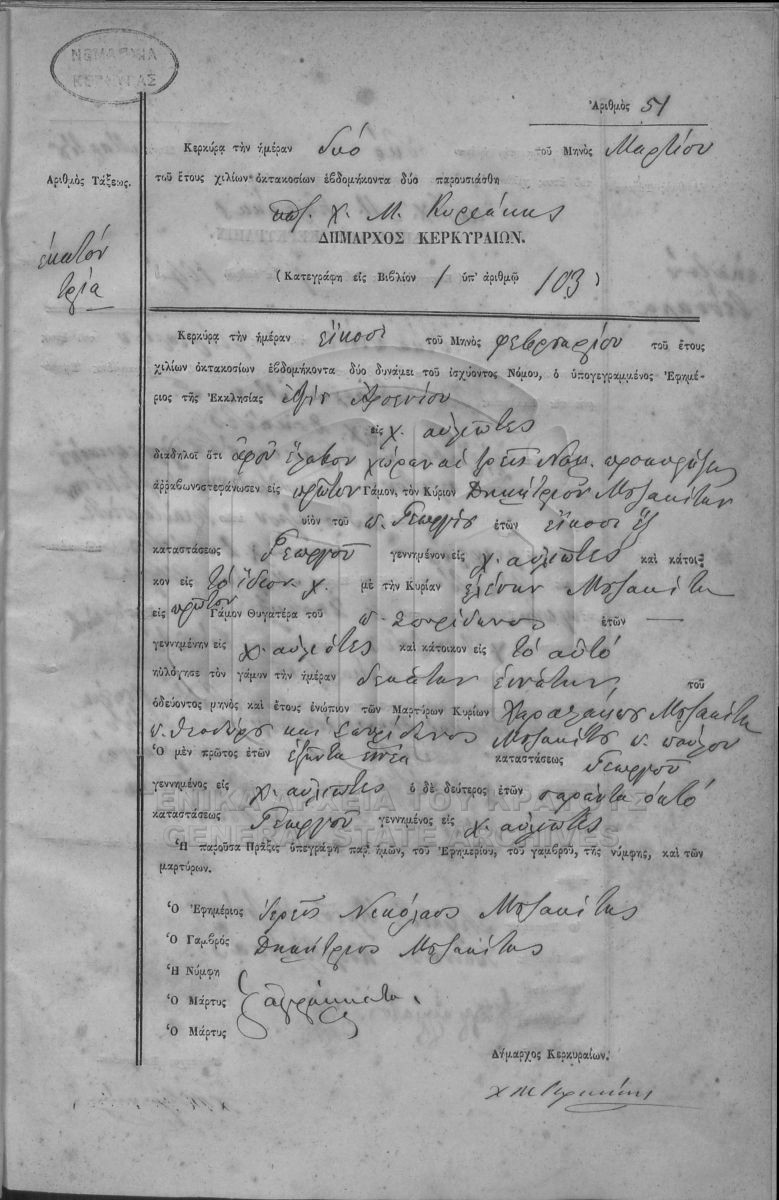 ΝΟΜΑΡΧΙΑ
ΚΕΡΚΥΡΑΣ
Ἀριθμὸς 51
Κερκύρᾳ τὴν ἡμέραν δυό τοῦ Μηνὸς Μαρτίου
Ἀριθμὸς Τάξεως.
τοῦ ἔτους χιλίων ὀκτακοσίων ἑβδομήκοντα δύο παρουσιάσθη
Χ. Μ. Κυριάκης
ΔΗΜΑΡΧΟΣ ΚΕΡΚΥΡΑΙΩΝ.
ἑκατόν
τρία
(Κατεγράφη εἰς Βιβλίον 1 ὑπ' ἀριθμῷ 103)
Κερκύρᾳ τὴν ἡμέραν εἴκοσι τοῦ Μηνὸς φεβρουαρίου τοῦ ἔτους
χιλίων ὀκτακοσίων ἑβδομήκοντα δύο δυνάμει τοῦ ἰσχύοντος Νόμου, ὁ ὑπογεγραμμένος Ἐφημέ-
ριος τῆς Ἐκκλησίας Ἀρσενίου
εἰς χ. αὐλιῶτες
διαδηλοῖ ὅτι ἀφοῦ ἔλαβον χώραν αἱ τρεῖς Νομ. προκηρύξεις
ἀρραβωνοστεφάνωσεν εἰς πρῶτον Γάμον, τὸν Κύριον Δημήτριον Μουζακίτην
υἱὸν τοῦ π. Γεωργίου ἐτῶν εἴκοσι ἕξ
καταστάσεως Γεωργοῦ γεννημένον εἰς χ. αὐλιῶτες καὶ κάτοι-
κον εἰς τὸ ἴδιον χ. μὲ τὴν Κυρίαν ἑλένην Μουζακίτη
εἰς πρῶτον Γάμον Θυγατέρα τοῦ π. Σπυρίδωνος ἐτῶν —
γεννημένην εἰς χ. αὐλιότες καὶ κάτοικον εἰς τὸ αὐτό
ηὐλόγησε τὸν γάμον τὴν ἡμέραν δεκάτην ἐννάτην τοῦ
ὁδεύοντος μηνὸς καὶ ἔτους ἐνώπιον τῶν Μαρτύρων Κυρίων Χαραλάμπου Μουζακίτη
π. Θεοδώρου καὶ Σπυρίδωνος Μουζακίτη π. παύλου
Ὁ μὲν πρῶτος ἐτῶν ἑξῆντα ἐννέα καταστάσεως Γεωργοῦ
γεννημένος εἰς χ. αὐλιῶτες ὁ δὲ δεύτερος ἐτῶν σαράντα ὀκτό
ΓΕΝΙΚΑ ΑΡΧΕΙΑ ΤΟΥ ΚΡΑΤΟΥΣ
καταστάσεως Γεωργοῦ γεννημένος εἰς χ. αὐλιῶτες
GENERAL STATE ARCHIVES
Ἡ παροῦσα Πρᾶξις ὑπεγράφη παρ' ἡμῶν, τοῦ Ἐφημερίου, τοῦ γαμβροῦ, τῆς νύμφης, καὶ τῶν
μαρτύρων.
Ὁ Ἐφημέριος ἱερεὺς Νικόλαος Μουζακίτης
Ὁ Γαμβρὸς Δημήτριος Μουζακίτης
Ἡ Νύμφη
Ὁ Μάρτυς ἀγράμματοι
Ὁ Μάρτυς
Δήμαρχος Κερκυραίων.
Χ Μ Κυριάκης